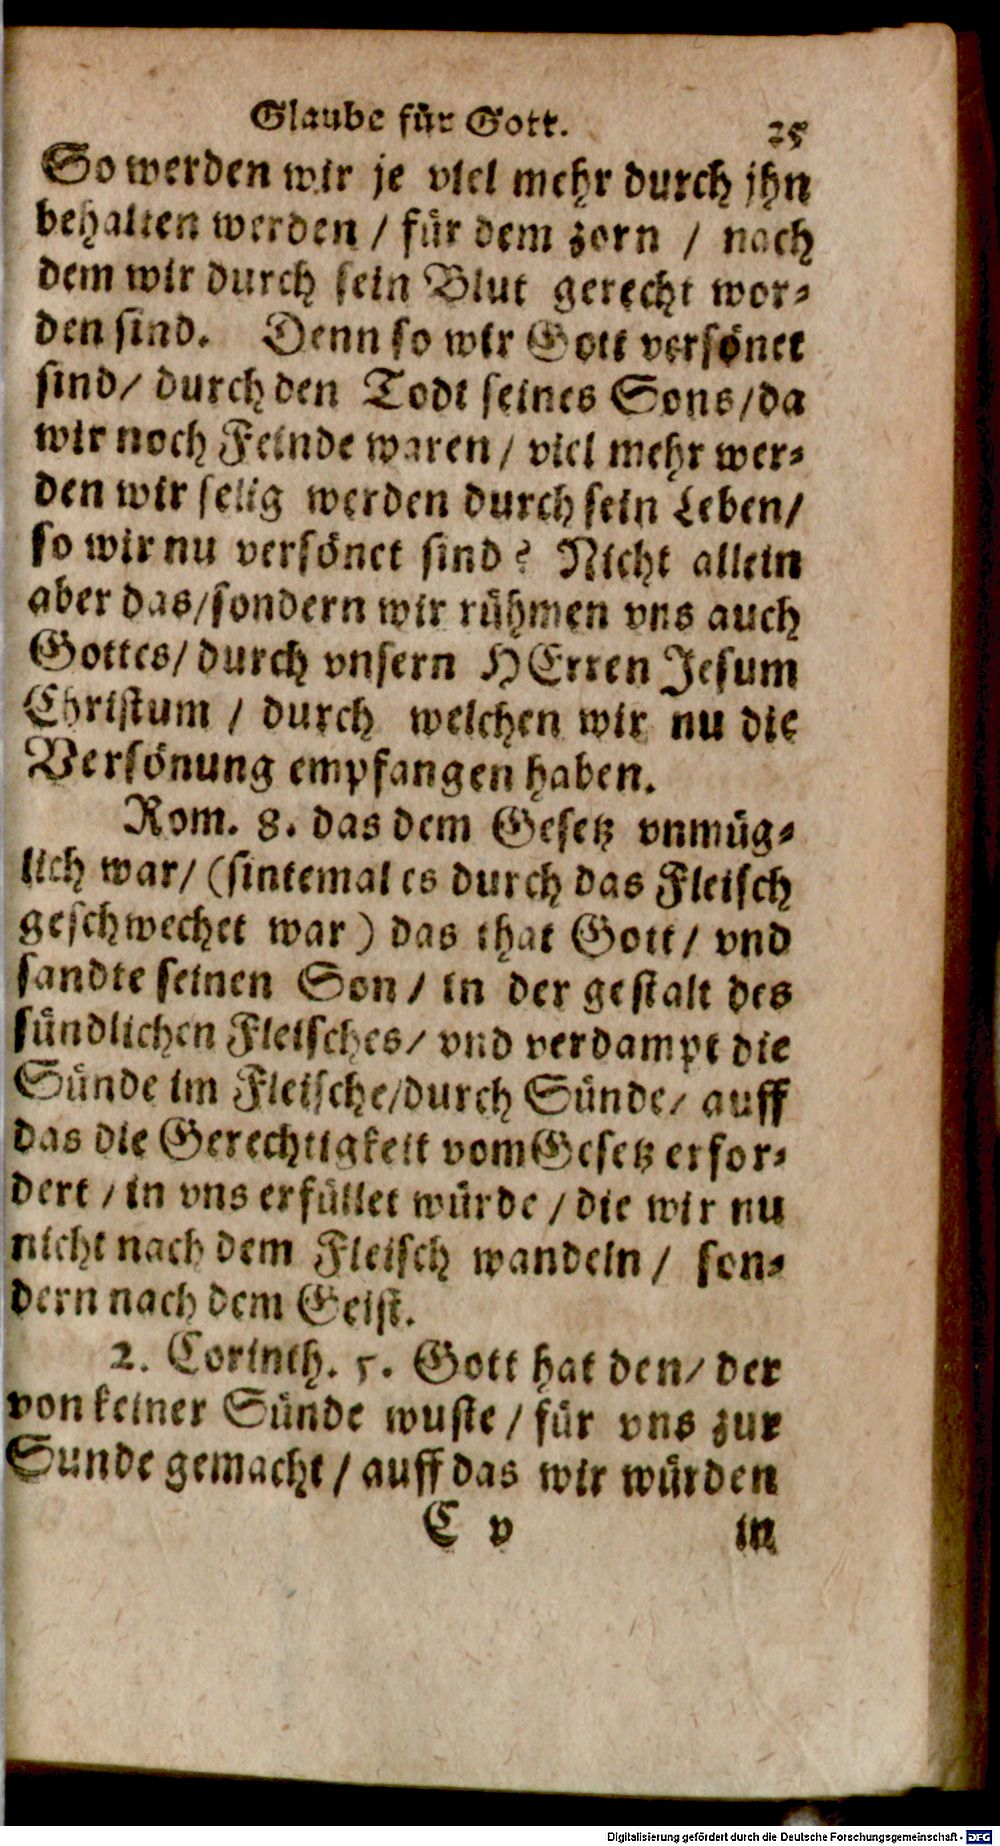 Glaube für Gott. 25
So werden wir je viel mehr durch jhn
behalten werden / für dem zorn / nach
dem wir durch sein Blut gerecht wor⸗
den sind. Denn so wir Gott versönet
sind/ durch den Todt seines Sons/da
wir noch Feinde waren / viel mehr wer⸗
den wir selig werden durch sein Leben/
so wir nu versönet sind? Nicht allein
aber das/sondern wir rühmen vns auch
Gottes/ durch vnsern HErren Jesum
Christum / durch welchen wir nu die
Versönung empfangen haben.
Rom. 8. das dem Gesetz vnmüg⸗
lich war/ (sintemal es durch das Fleisch
geschwechet war) das that Gott/ vnd
sandte seinen Son / in der gestalt des
sündlichen Fleisches/ vnd verdampt die
Sünde im Fleische/durch Sünde/ auff
das die Gerechtigkeit vom Gesetz erfor⸗
dert / in vns erfüllet würde / die wir nu
nicht nach dem Fleisch wandeln / son⸗
dern nach dem Geist.
2. Corinth. 5. Gott hat den/ der
von keiner Sünde wuste / für vns zur
Sunde gemacht / auff das wir würden
C v in
Digitalisierung gefördert durch die Deutsche Forschungsgemeinschaft - DFG